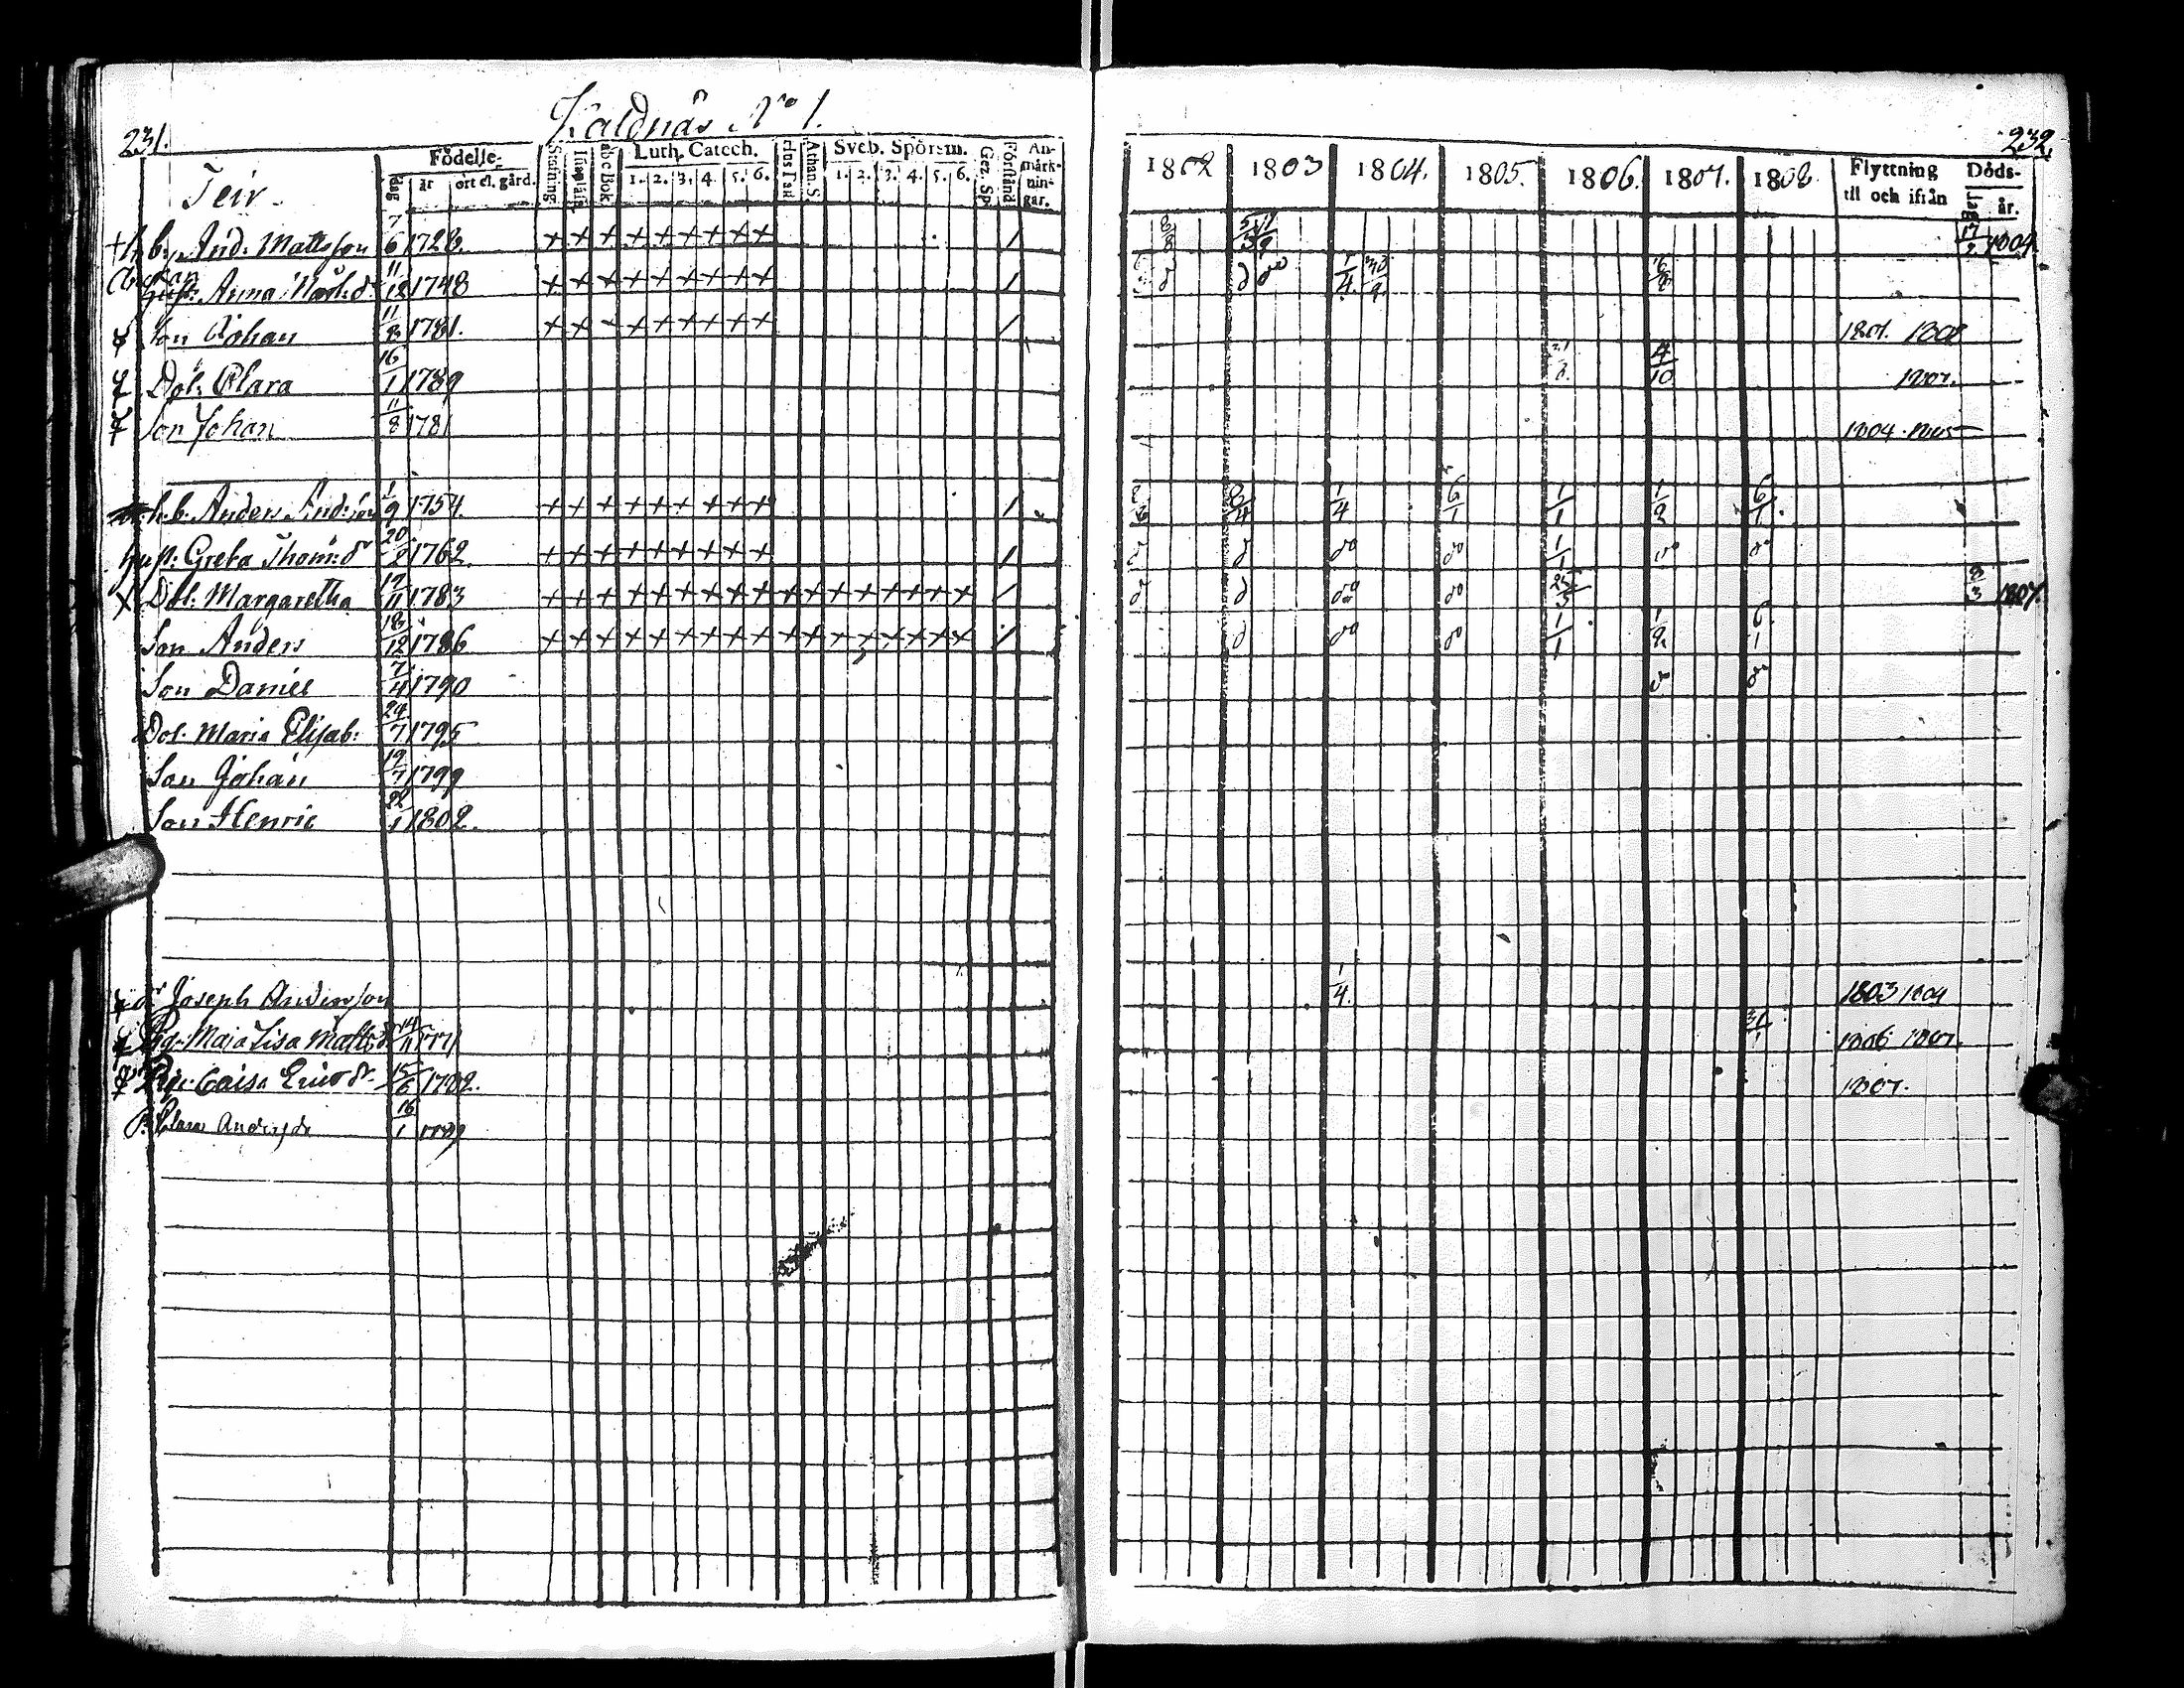 231.
Kaldnäs No 1.
232.
Teir
Födelse-
dag
år
ort el. gård.
Stafning
abc Bok
Luth. Catech.
1. 2. 3. 4. 5. 6.
Athan. S.
Sveb. Spörsm.
1. 2. 3. 4. 5. 6.
Gez. Sp.
Förstånd
An-
märk-
nin-
gar.
1802 1803 1804. 1805. 1806. 1807. 1808
Flyttning
till och ifrån
Döds-
dag
år.
b. And: Mattsson 7/6 1728. + + + + + + + + + 1 17/2 1804.
Hust: Anna 11/12 1748 + + + + + + + + + 1 1/4
Son Johan 11/8 1781. + + + + + + + + + 1 1807. 1808
Dot: Clara 16/1 1789 4/10 1807.
Son Johan 11/8 1781 1804. 1805
h. b. Anders And:son 1/9 1754. + + + + + + + + + 1 1/4 6/1 1/1 1/2 6/1
Hust: Greta Thom:dr 20/2 1762. + + + + + + + + + 1 d do do 1/1 do do
Dot: Margaretha 1783 + + + + + + + + + + + + + + + + + 1 d do do 8/3 1807.
Son Anders 18/12 1786 + + + + + + + + + + + + + + + + + 1 d do do 1/1 1/2 6/1
Son Daniel 7/4 1790 do do
Dot: Maria Elisab: 24/7 1795
Son Johan 19/7 1799
Son Henric 22/1 1802.
Joseph Andersson 1/4. 1803 1804
Pig. Maja Lisa Mattsdr 14/11 1771 31/1 1806 1807.
Pig. Caisa Ericsdr 15/6 1782. 1807.
P. Clara Andersdr 16/1 1789